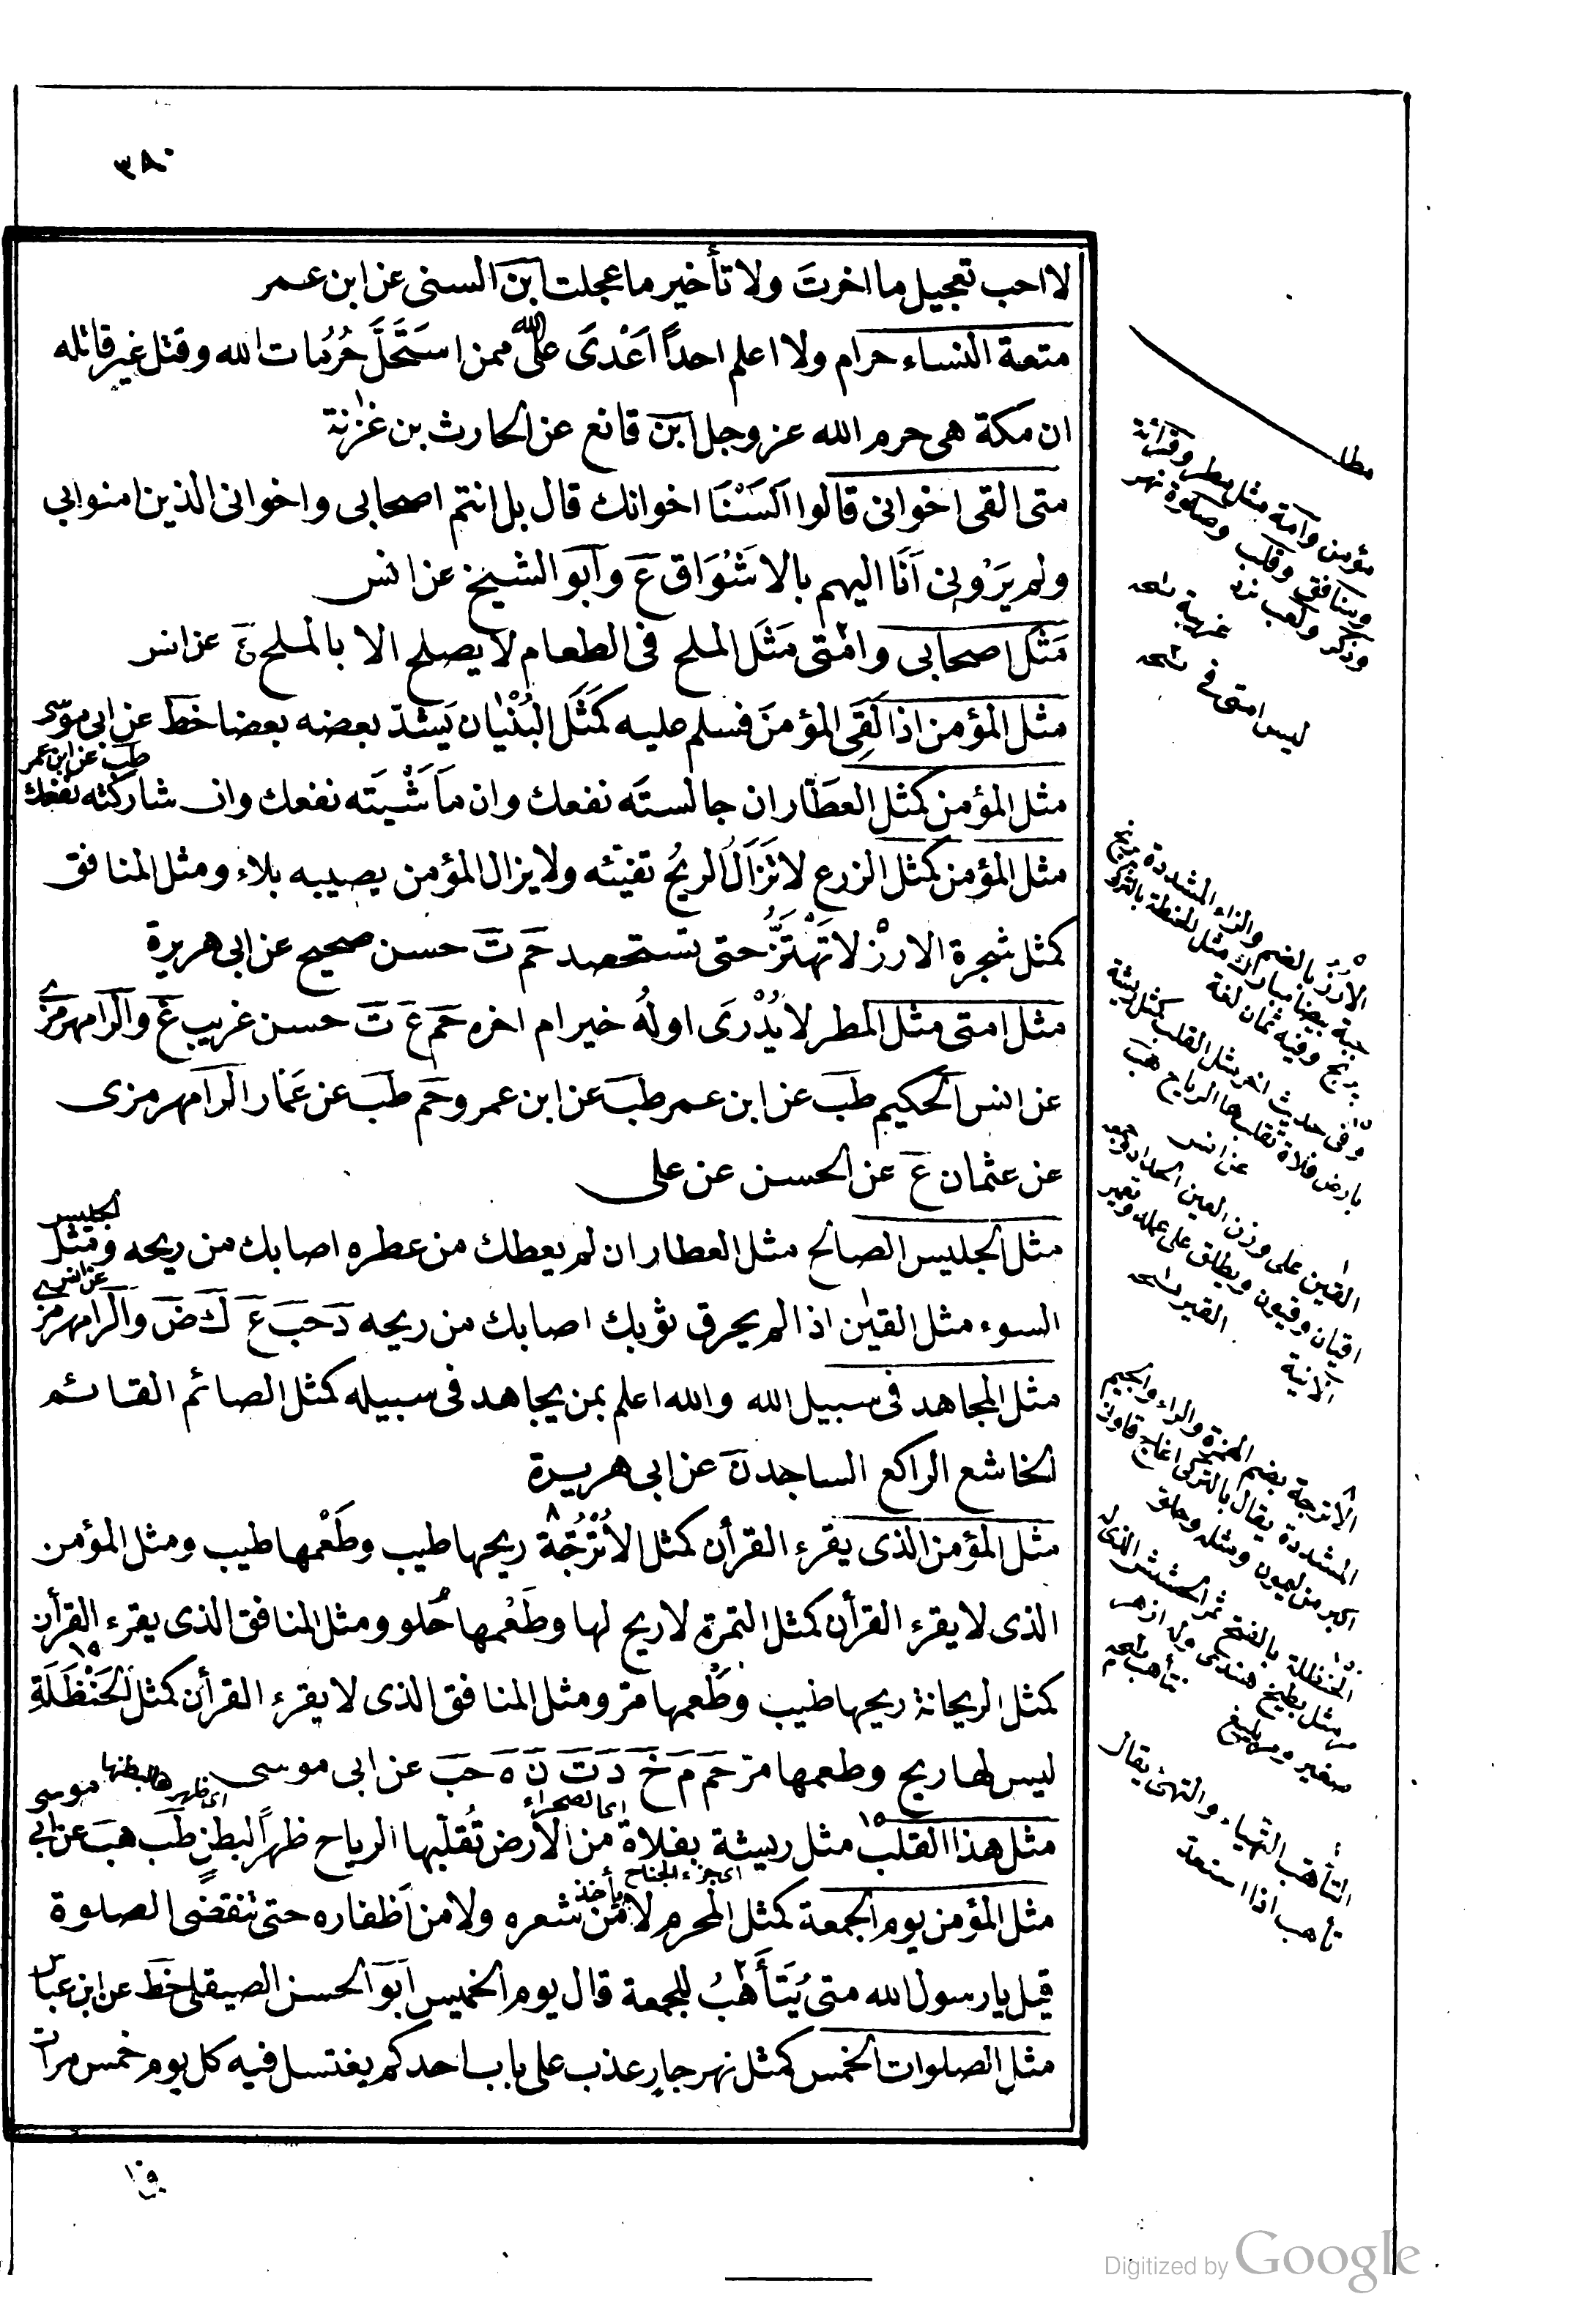 ٣٨٠
لا احب تعجيل ما اخرتَ ولا تأخير ما عجلت ابن السنى عن ابن عمر
متعة النساء حرام ولا اعلم احداً اَعْدَى على الله ممن اسْتَحَلَّ حُرُمات الله وقتل غير قاتله
ان مكة هى حرم الله عز وجل ابن قانع عن الحارث بن غزية
متى القى اخوانى قالوا اَلَسْنَا اخوانك قال بل انتم اصحابى واخوانى الذين امنوا بى
ولم يَرَوْنِى اَنَا اليهم بالاشْوَاق ع وابو الشيخ عن انس
مَثَل اصحابى وامتى مَثَل الملح فى الطعام لا يصلح الا بالملح ع عن انس
مثل المؤمن اذا لَقِىَ المؤمنَ فسلم عليه كَمَثَل البُنْيان يَشدّ بعضه بعضا خط عن ابى موسى
طب عن ابن عمر
مثل المؤمن كمثل العطّار ان جالستَه نفعك وان مَاشَيْتَه نفعك وان شاركته نفعك
مثل المؤمن كمثل الزرع لا تزَالُ الريحُ تفيئه ولا يزال المؤمن يصيبه بلاء ومثل المنافق
كمثل شجرة الارزْ لا تَهْتَزُّ حتى تستحصد حم ت حسن صحيح عن ابى هريرة
مثل امتى مثل المطر لا يُدْرَى اولهُ خير ام اخره حم ع ت حسن غريب ع والرامهرمزى
عن انس الحكيم طب عن ابن عمر طب عن ابن عمرو حم طب عن عمار الرامهرمزى
عن عثمان ع عن الحسن عن على
مثل الجليس الصالح مثل العطار ان لم يعطك من عطره اصابك من ريحه ومثل الجليس
السوء مثل القين اذا لم يحرق ثوبك اصابك من ريحه د حب ع ك ض والرامهرمزى عن انس
مثل المجاهد فى سبيل الله والله اعلم بمن يجاهد فى سبيله كمثل الصائم القائم
الخاشع الراكع الساجد ن عن ابى هريرة
مثل المؤمن الذى يقرء القرأن كمثل الاُتْرُجّة ريحها طيب وطَعْمها طيب ومثل المؤمن
الذى لا يقرء القرأن كمثل التمرة لا ريح لها وطَعْمها حُلو ومثل المنافق الذى يقرء القرأن
كمثل الريحانة ريحها طيب وطَعْمها مرّ ومثل المنافق الذى لا يقرء القرأن كمثل الحَنْظَلَةِ
ليس لها ريح وطعمها مرّ حم م خ د ت ن ه حب عن ابى موسى
اى الصحراء
اى ظهرها لبطنها
مثل هذا القلب مثل ريشة بفلاة من الارض تُقلّبها الرياح ظهراً لبطنٍ طب هب عن ابى موسى
اى جزء الجناح
مثل المؤمن يوم الجمعة كمثل المحرم لا يأخذ من شعره ولا من اَظفاره حتى تنقضى الصلوة
قيل يا رسول الله متى يُتَأَهّبُ للجمعة قال يوم الخميس ابو الحسن الصيقلى خط عن ابن عباس
مثل الصلوات الخمس كمثل نهر جارٍ عذب على باب احدكم يغتسل فيه كل يوم خمس مرات
مطلب
ليس امتى فى
الاَرُزّ بالضم والزاء المشددة
وفى حديث اخر مثل القلب كمثل ريشة
بارض فلاة تقلبها الرياح هب
عن انس
القين على وزن العين الحداد
اقيان وقيون ويطلق على عمله
الآنية
الاترجة بضم الهمزة والراء والجيم
المشددة يقال بالتركى اغاج قاونى
اكبر من ليمون
الحنظلة بالفتح
التأهب التهياء والتهئ يقال
تأهب اذا استعد
Digitized by Google